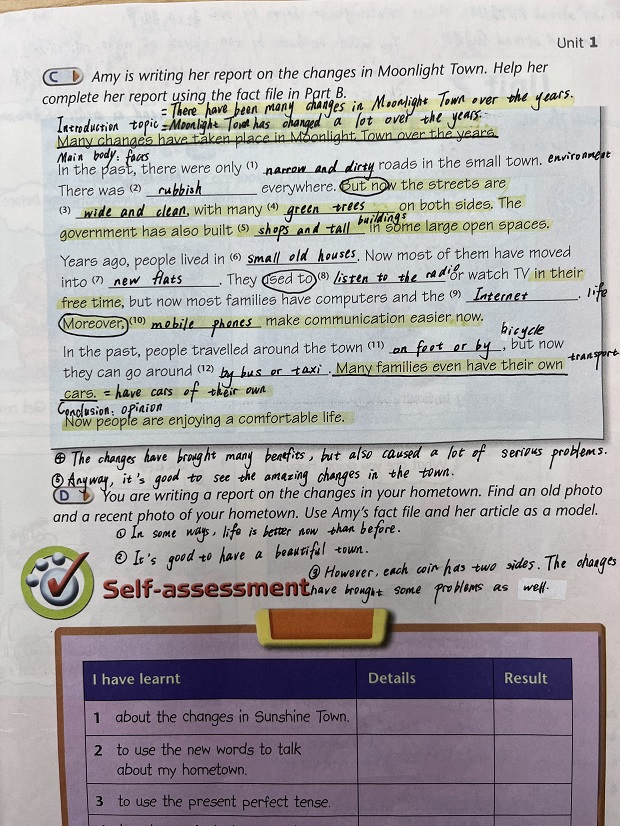 Unit 1
C Amy is writing her report on the changes in Moonlight Town. Help her
complete her report using the fact file in Part B.
= There have been many changes in Moonlight Town over the years.
Introduction topic = Moonlight Town has changed a lot over the years.
Many changes have taken place in Moonlight Town over the years.
Main body: facts
In the past, there were only (1) narrow and dirty roads in the small town. environment
There was (2) rubbish everywhere. But now the streets are
(3) wide and clean, with many (4) green trees on both sides. The
government has also built (5) shops and tall buildings in some large open spaces.
Years ago, people lived in (6) small old houses. Now most of them have moved
into (7) new flats. They used to (8) listen to the radio or watch TV in their
free time, but now most families have computers and the (9) Internet. life
Moreover, (10) mobile phones make communication easier now.
In the past, people travelled around the town (11) on foot or by bicycle, but now
they can go around (12) by bus or taxi. Many families even have their own transport
cars. = have cars of their own
Conclusion: opinion
Now people are enjoying a comfortable life.
④ The changes have brought many benefits, but also caused a lot of serious problems.
⑤ Anyway, it's good to see the amazing changes in the town.
D You are writing a report on the changes in your hometown. Find an old photo
and a recent photo of your hometown. Use Amy's fact file and her article as a model.
① In some ways, life is better now than before.
② It's good to have a beautiful town.
③ However, each coin has two sides. The changes
have brought some problems as well.
Self-assessment
I have learnt Details Result
1 about the changes in Sunshine Town.
2 to use the new words to talk
about my hometown.
3 to use the present perfect tense.